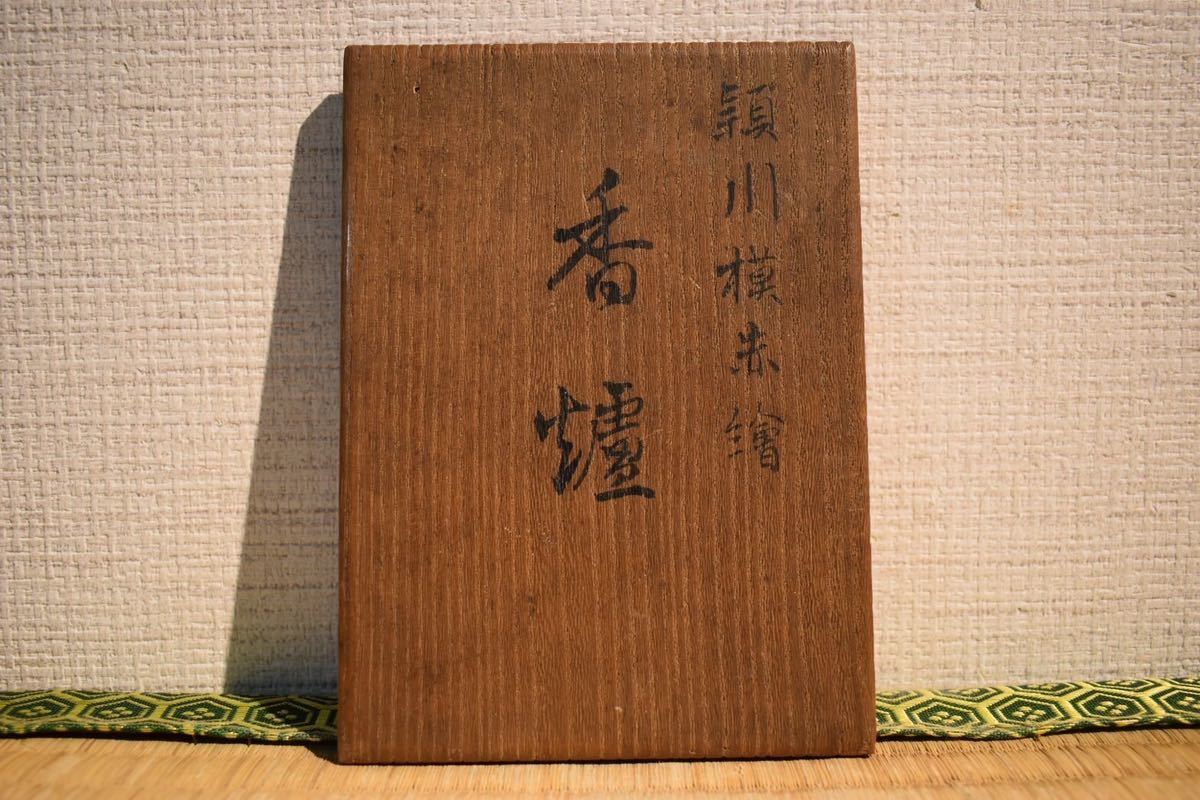 頴川模赤繪
香爐